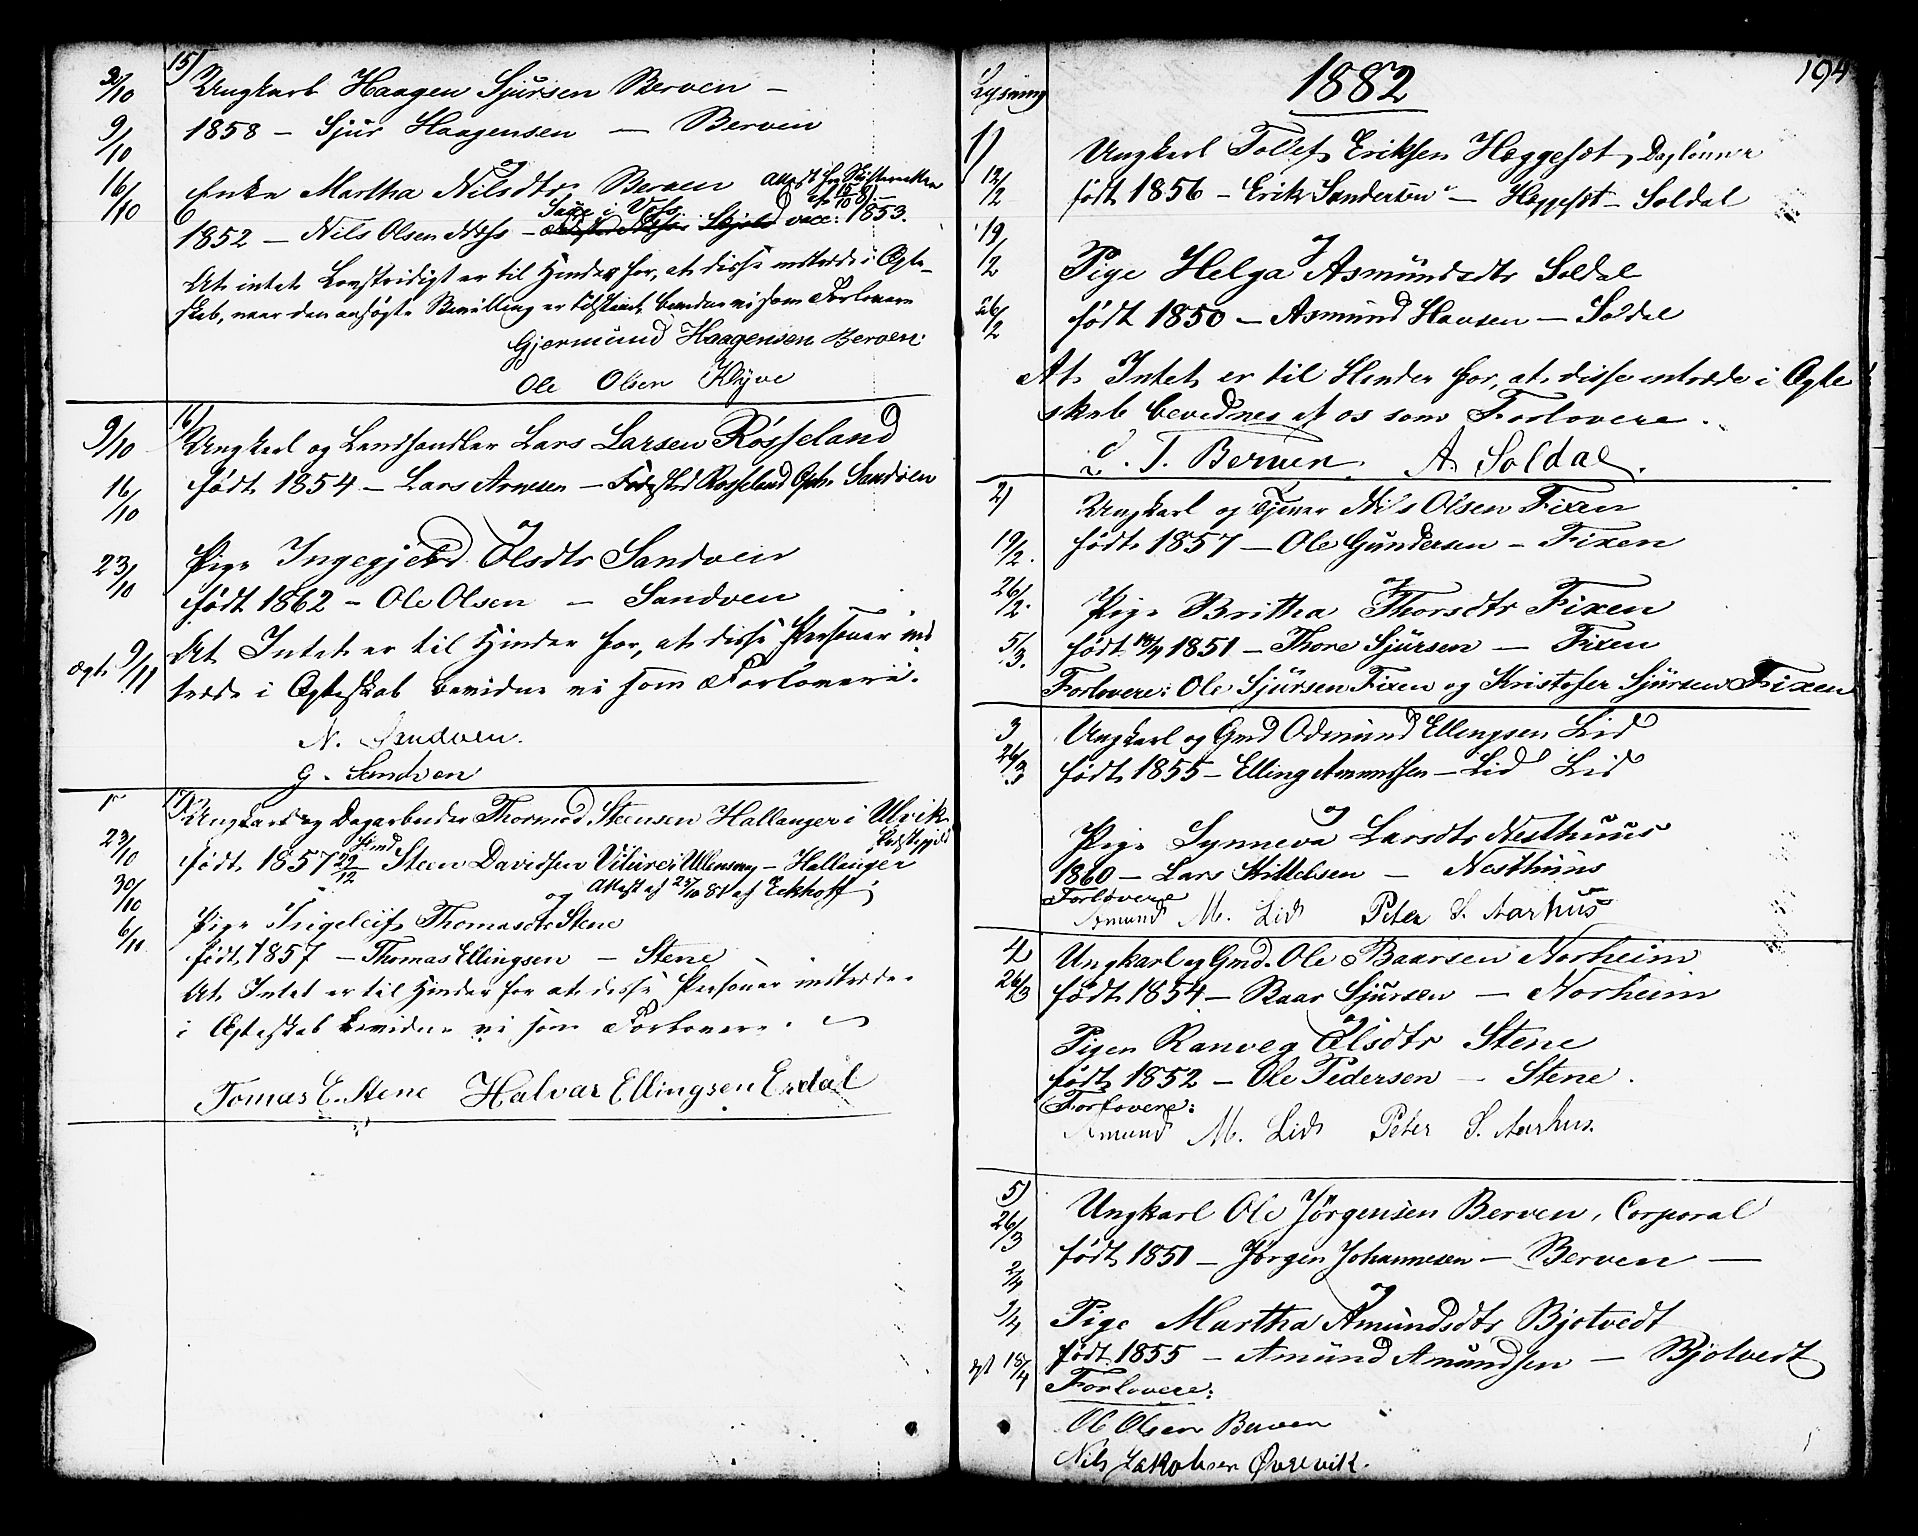 15)
2/10 Ungkarl Haagen Sjursen Berven –
9/10 1858 – Sjur Haagensen – Berven
og
16/10 Enke Martha Nilsdtr Berven Attest fra Skifteretten
af 15/10 81
Saue i Vos
1852 – Nils Olsen Næss – vacc: 1853.
At intet Lovstridigt er til Hinder for, at disse indtræde i Ægte-
skab, naar den ansøgte Bevilling er tilstaaet, bevidne vi som Forlovere
Gjermund Haagensen Berven.
Ole Olsen Klyve
16)
9/10 Ungkarl og Landhandler Lars Larsen Røsseland
16/10 født 1854 – Lars Arnesen – Fødested Røsseland Oph. Sandven
og
23/10 Pige Ingegjerd Olsdtr Sandven
født 1862 – Ole Olsen – Sandven
At Intet er til Hinder for, at disse Personer ind-
Ægt. 9/11 træde i Ægteskab bevidne vi som Forlovere.
N. Sandven.
G. Sandven
17)
Ungkarl og Dagarbeider Thormod Steensen Hallanger i Ulvik
Præstegjeld
23/10 født 1857 29/12 Steen Davidsen i Ullensvang – Hallanger
30/10 og Attest af 25/10 81 af Eckhoff;
6/11 Pige Ingeleif Thomasdtr Stene
født 1857 – Thomas Ellingsen – Stene
At Intet er til Hinder for at disse Personer indtræde
i Ægteskab bevidne vi som Forlovere.
Tomas E. Stene Halvar Ellingsen Erdal
194
Lysning 1882
1) Ungkarl Tollef Eriksen Heggesot, Daglønner
12/2 født 1856 – Erik Sandersen – Heggesot – Soldal
19/2 og
Pige Helga Asmundsdtr Soldal
26/2 født 1850 – Asmund Hansen – Soldal
At Intet er til Hinder for, at disse indtræde i Ægte
skab bevidnes af os som Forlovere.
L. T. Berven. A. Soldal.
2) Ungkarl og Tjener Nils Olsen Fixen
19/2. født 1857 – Ole Gundersen – Fixen
og
26/2. Pige Britha Thorsdtr Fixen
5/3. født 1851 – Thore Sjursen – Fixen
Forlovere: Ole Sjursen Fixen og Kristofer Sjursen Fixen
3 Ungkarl og Gmd Odmund Ellingsen Lid
26/3 født 1855 – Elling Amundsen – Lid Lid
og
Pige Synneva Larsdtr Nesthuus
1860 – Lars Kittelsen – Nesthuus
Forlovere
Amund M. Lid Peter S. Aarhus
4 Ungkarl og Gmd. Ole Baarsen Norheim
26/3 født 1854 – Baar Sjursen – Norheim
og
Pigen Ranveg Olsdtr Stene
født 1852 – Ole Pedersen – Stene.
Forlovere:
Amund M. Lid Peter S. Aarhus.
5)
26/3 Ungkarl Ole Jørgensen Berven, Corporal
2/4 født 1851 – Jørgen Johannesen – Berven –
og
9/4 Pige Martha Amundsdtr Bjotvedt
født 1855 – Amund Amundsen – Bjotvedt
Forlovere:
Ol Olsen Berven
Nils Jakobsen Øvrevik.